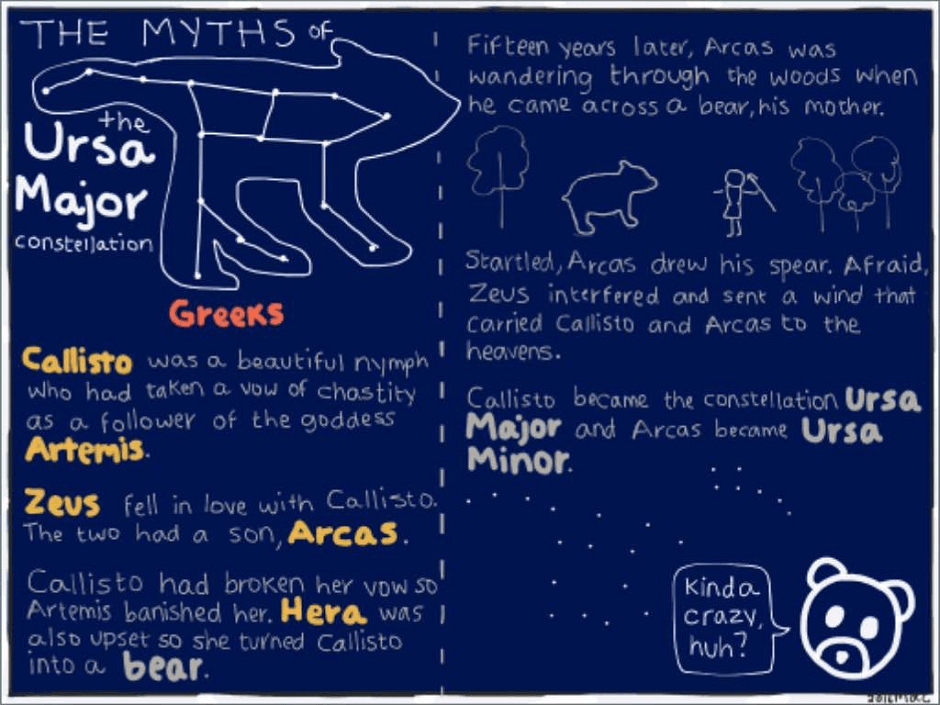 THE MYTHS of
the
Ursa
Major
constellation
Greeks
Callisto was a beautiful nymph
who had taken a vow of chastity
as a follower of the goddess
Artemis.
Zeus fell in love with Callisto.
The two had a son, Arcas.
Callisto had broken her vow so
Artemis banished her. Hera was
also upset so she turned Callisto
into a bear.
Fifteen years later, Arcas was
wandering through the woods when
he came across a bear, his mother.
Startled, Arcas drew his spear. Afraid,
Zeus interfered and sent a wind that
carried Callisto and Arcas to the
heavens.
Callisto became the constellation Ursa
Major and Arcas became Ursa
Minor.
Kinda
crazy,
huh?